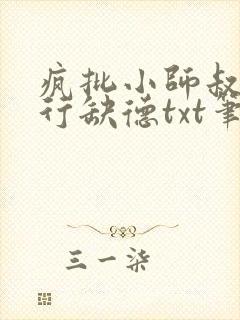 疯批小师叔
行缺德txt笔
三一柒